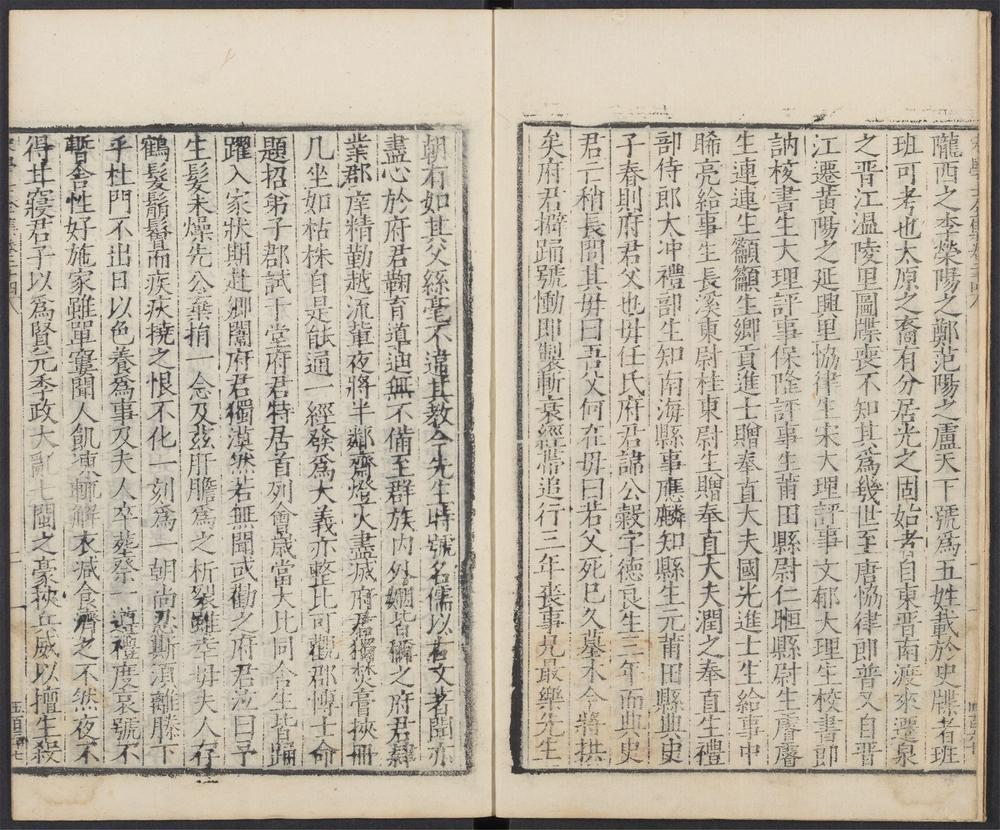 隴西之李滎陽之鄭范陽之盧天下號爲五姓載於史牒者班
班可考也太原之裔有分居光之固始者自東晉南渡來遷泉
之晉江溫陵里圖牒喪不知其爲幾世至唐協律郎普又自晉
江遷莆陽之延興里協律生宋大理評事文郁大理生校書郎
訥校書生大理評事保隆評事生莆田縣尉仁𣈶縣尉生膺膺
生連連生籲籲生鄉貢進士贈奉直大夫國光進士生給事中
晞亮給事生長溪東尉桂東尉生贈奉直大夫潤之奉直生禮
部侍郎大冲禮部生知南海縣事應麟知縣生元莆田縣典史
子春則府君父也毋任氏府君諱公榖字德良生三年而典史
君亡稍長問其毋曰吾父何在毋曰若父死巳久墓木今將拱
矣府君擗踊號慟即製斬哀絰帶追行三年喪事兄最樂先生
朝有如其父絲毫不違其教令先生時號名儒以右文著聞亦
盡心於府君鞠育道迪無不備至群族内外姻皆稱之府君肄
業郡庠精勤越流軰夜將半鄰齋燈火盡滅府君獨焚膏挾冊
几坐如枯株自是能通一經發爲大義亦整比可觀郡博士命
題招弟子郡試于堂府君特居首列會歲當大比同舍生皆踊
躍入家狀期赴鄉闈府君獨漠然若無聞或勸之府君泣曰予
生髮未燥先公棄捐一念及玆肝膽爲之析裂雖幸毋夫人存
鶴髮鬅鬙而疾疢撓之恨不化一刻爲一朝尚忍斯須離膝下
乎杜門不出日以色養爲事及夫人卒塟祭一遵禮度哀號不
暫舎性好施家雖單寠聞人飢凍輒解衣減食濟之不然夜不
得甘寢君子以爲賢元季政大亂七閩之豪挾兵威以擅生殺